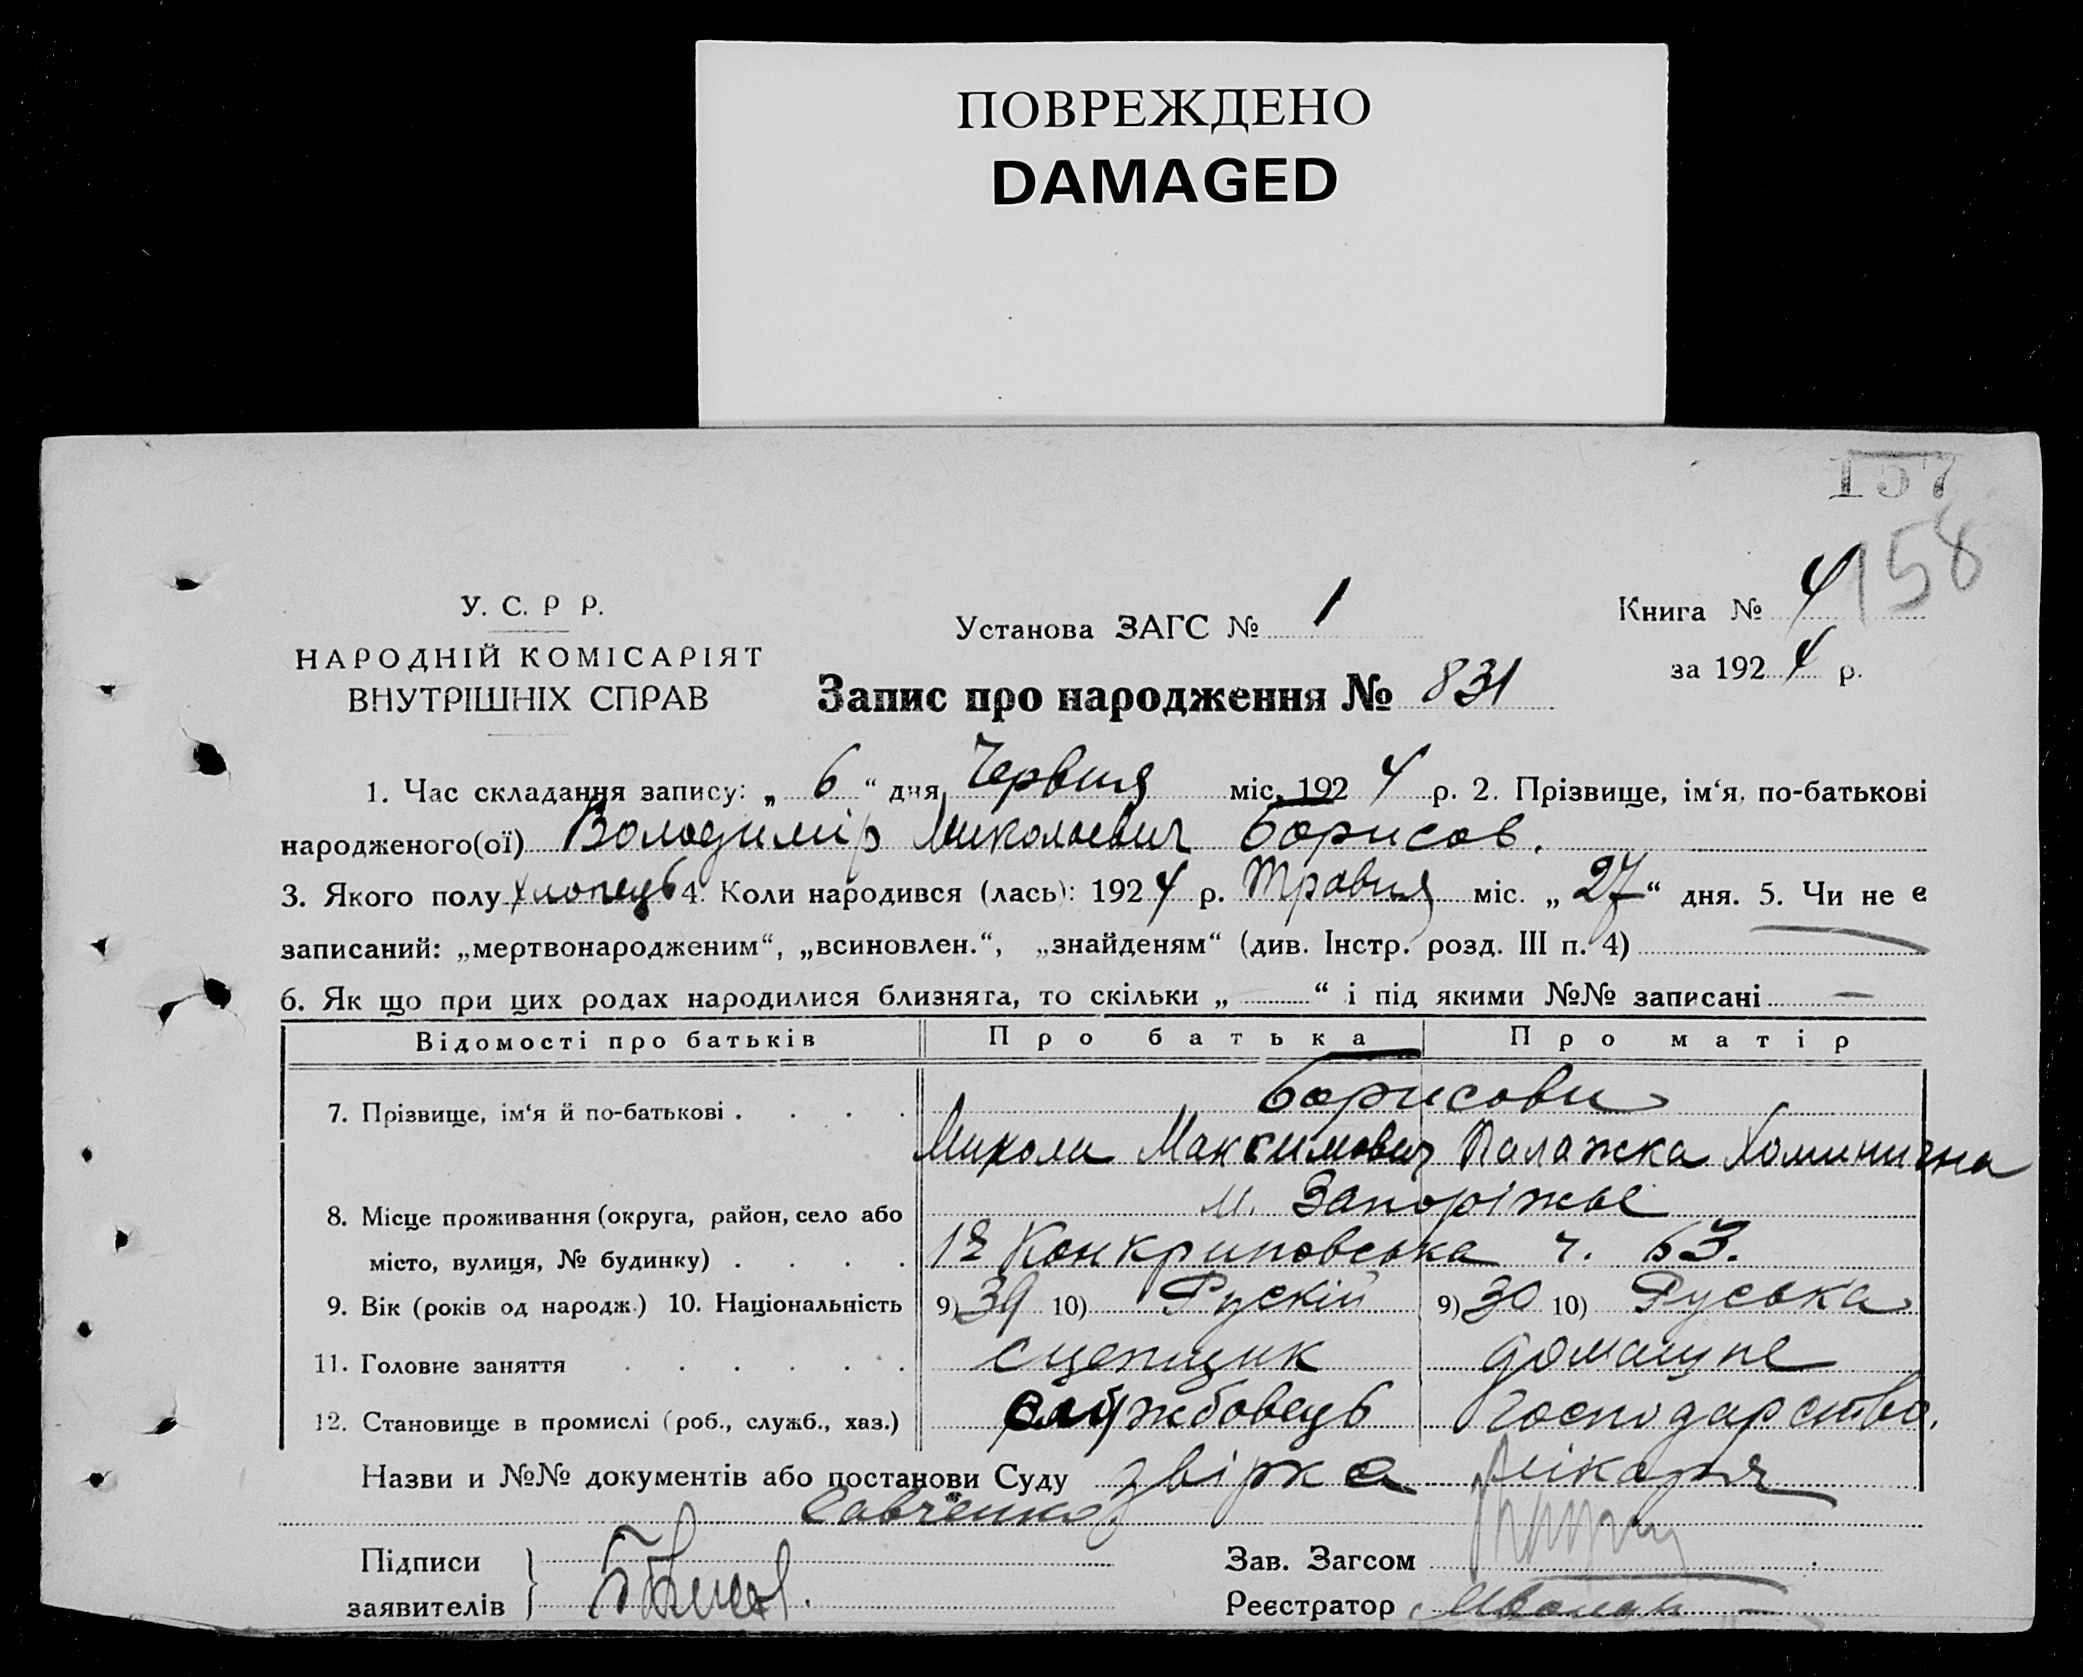 ПОВРЕЖДЕНО
DAMAGED
157
158
У. С. Р Р.
НАРОДНІЙ КОМІСАРІЯТ
ВНУТРІШНІХ СПРАВ
Установа ЗАГС № 1
Книга № 4
за 1924 р.
Запис про народження № 831
1. Час складання запису: „ 6 “ дня Червня міс. 1924 р. 2. Прізвище, ім‘я, по-батькові
народженого(ої) Володимір Миколаевич Борисов.
3. Якого полу хлопець 4. Коли народився (лась): 1924 р. Травня міс. „ 27 “ дня. 5. Чи не є
записаний: „мертвонародженим“, „всиновлен.“, „знайденям“ (див. Інстр. розд. III п. 4)
6. Як що при цих родах народилися близнята, то скільки „ “ і під якими №№ записані —
Відомості про батьків Про батька Про матір
7. Прізвище, ім‘я й по-батькові . . . . Борисови
Микола Максимович Палажка Хоминична
8. Місце проживання (округа, район, село або м. Запоріжье
місто, вулиця, № будинку) . . . . ч. 63.
9. Вік (років од народж.) 10. Національність 9) 39 10) Рускій 9) 30 10) Руська
11. Головне заняття . . . . . . сцепщик домашне
12. Становище в промислі (роб., служб., хаз.) службовець господарство.
Назви и №№ документів або постанови Суду лікаря
Савченко
Підписи
заявителів
Зав. Загсом
Реєстратор